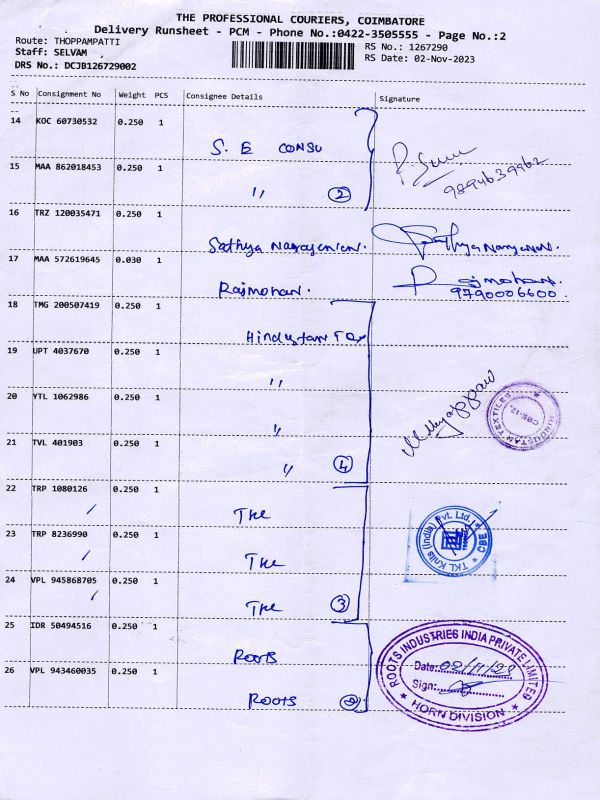 THE PROFESSIONAL COURIERS, COIMBATORE
Delivery Runsheet - PCM - Phone No.:0422-3505555 - Page No.:2
Route: THOPPAMPATTI
Staff: SELVAM
DRS No.: DCJB126729002
RS No.: 1267290
RS Date: 02-Nov-2023
S No Consignment No Weight PCS Consignee Details Signature
14 KOC 60730532 0.250 1
S. E CONSU
15 MAA 862018453 0.250 1
,, 2
9894639962
16 TRZ 120035471 0.250 1
Sathya Narayanan. Sathya Narayanan.
17 MAA 572619645 0.030 1
Rajmohan. Rajmohan.
9790006600.
18 TMG 200507419 0.250 1
Hindustan Tex
19 UPT 4037670 0.250 1
,,
20 YTL 1062986 0.250 1
,,
HINDUSTAN TEXTILES
21 TVL 401903 0.250 1
,, 4
22 TRP 1080126 0.250 1
TKL
23 TRP 8236990 0.250 1
TKL
TKL Knits (India) Pvt. Ltd. * CBE *
24 VPL 945868705 0.250 1
TKL 3
25 IDR 50494516 0.250 1
ROOTS
26 VPL 943460035 0.250 1
ROOTS 2
ROOTS INDUSTRIES INDIA PRIVATE LIMITED
Date: 02/11/23
Sign:
* HORN DIVISION *